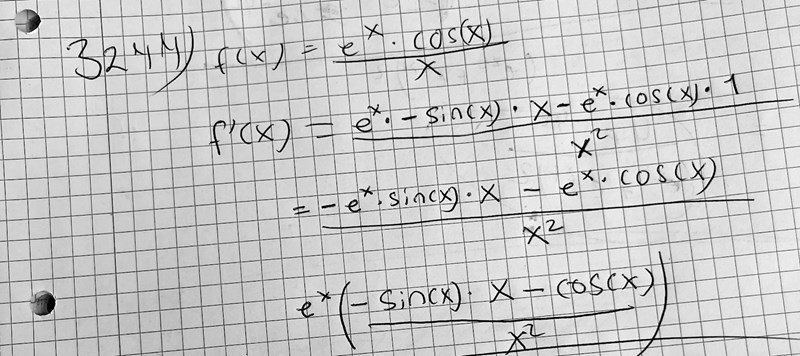 3244) f(x) = e^x · cos(x) / x
f'(x) = e^x · -sin(x) · x - e^x · cos(x) · 1 / x^2
= -e^x · sin(x) · x - e^x · cos(x) / x^2
e^x (-sin(x) · x - cos(x) / x^2)